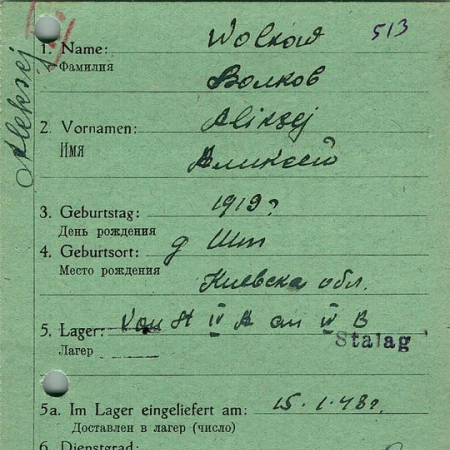 513
Aleksej
1. Name: Wolkow
Фамилия Волков
2. Vornamen: Alikzej
Имя Аликсей
3. Geburtstag: 1919г
День рождения
4. Geburtsort: д
Место рождения Киевска обл.
5. Lager: Von St IV A an IV B
Лагер Stalag
5a. Im Lager eingeliefert am: 15.1.43г.
Доставлен в лагер (число)
6. Dienstgrad: